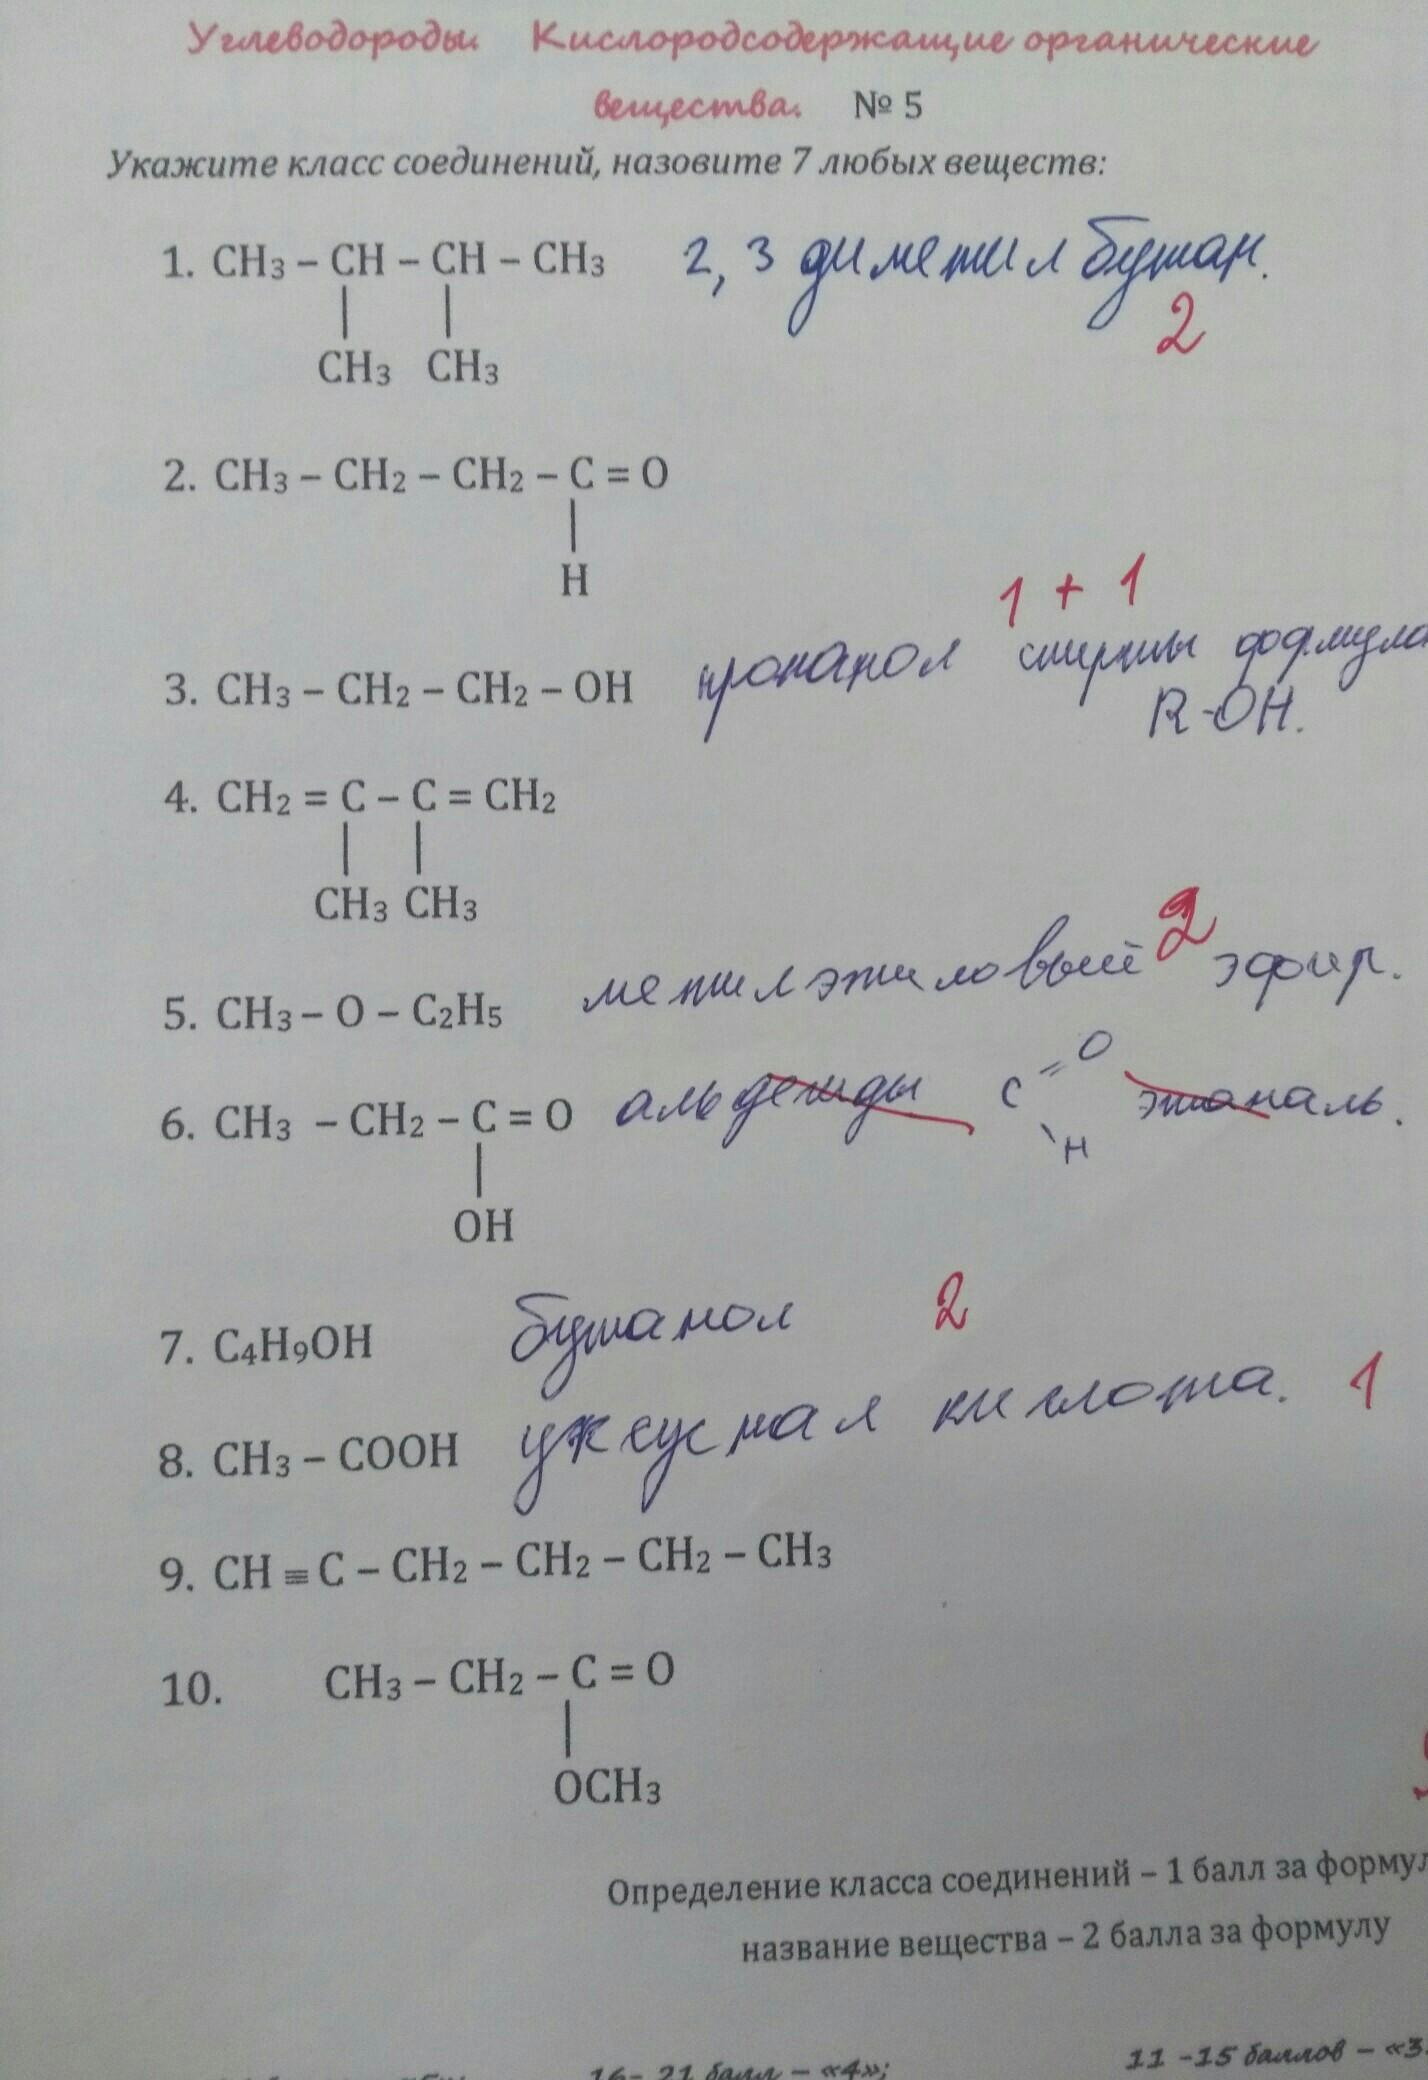 Углеводороды. Кислородсодержащие органические
вещества. № 5
Укажите класс соединений, назовите 7 любых веществ:
1. CH₃ – CH – CH – CH₃ 2, 3 диметилбутан.
| | 2
CH₃ CH₃
2. CH₃ – CH₂ – CH₂ – C = O
|
H
1 + 1
3. CH₃ – CH₂ – CH₂ – OH пропанол спирты формула
R-OH.
4. CH₂ = C – C = CH₂
| |
CH₃ CH₃
2
5. CH₃ – O – C₂H₅ метилэтиловый эфир.
6. CH₃ – CH₂ – C = O альдегиды C = O этаналь.
| \ H
OH
7. C₄H₉OH бутанол 2
8. CH₃ – COOH уксусная кислота. 1
9. CH ≡ C – CH₂ – CH₂ – CH₂ – CH₃
10. CH₃ – CH₂ – C = O
|
OCH₃
Определение класса соединений – 1 балл за формул
название вещества – 2 балла за формулу
11 –15 баллов – «3
16– 21 балл – «4»;